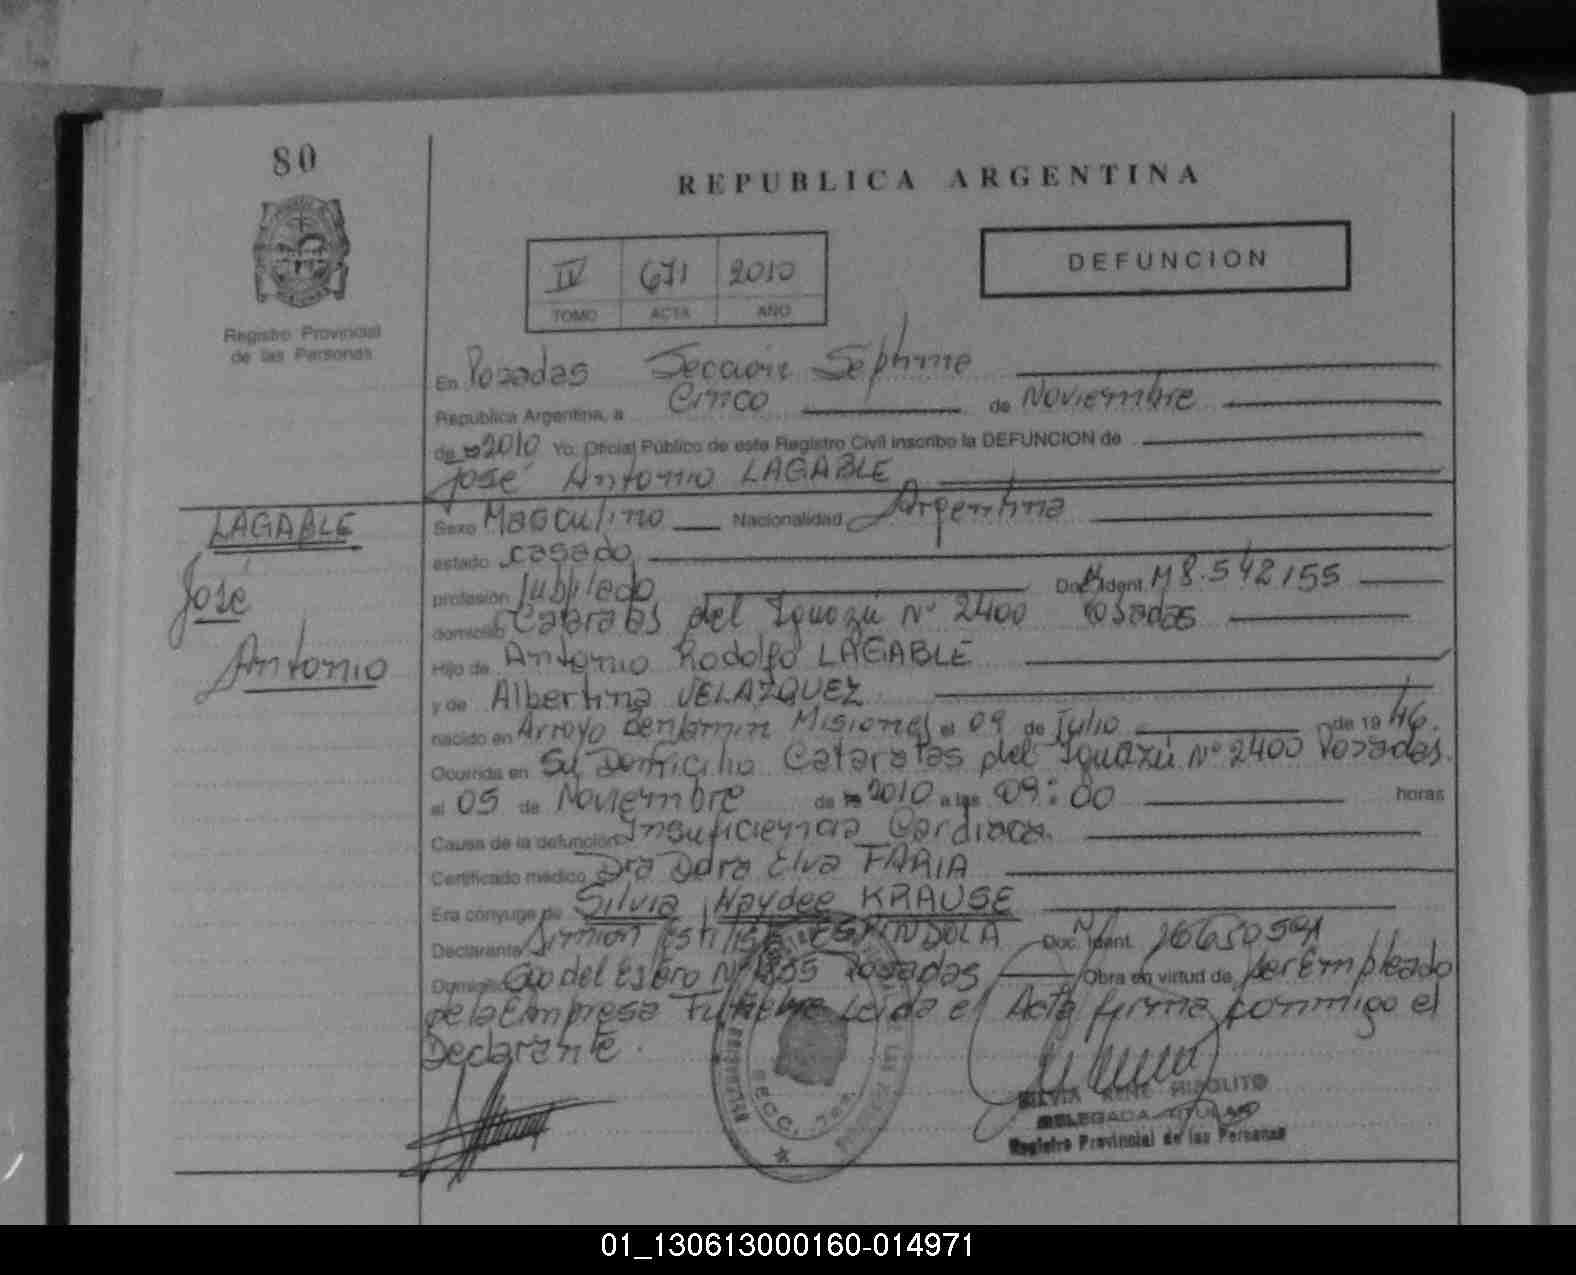 80
REPUBLICA ARGENTINA
Registro Provincial
de las Personas
IV 671 2010
TOMO ACTA AÑO
DEFUNCION
En Posadas Sección Séptima
Republica Argentina, a Cinco de Noviembre
de 2010 Yo, Oficial Público de este Registro Civil inscribo la DEFUNCION de
José Antonio LAGABLE
LAGABLE
José
Antonio
Sexo Masculino Nacionalidad Argentina
estado casado
profesión Jubilado Doc. Ident. M 8.542155
domicilio Cataratas del Iguazú N° 2400 Posadas
Hijo de Antonio Rodolfo LAGABLE
y de Albertina VELAZQUEZ
nacido en Arroyo Benjamin Misiones el 09 de Julio de 19 46.
Ocurrida en Su Domicilio Cataratas del Iguazú N° 2400 Posadas.
el 05 de Noviembre de 2010 a las 09:00 horas
Causa de la defunción Insuficiencia Cardiaca.
Certificado médico Dra Dora Elva FARIA
Era cónyuge de Silvia Haydee KRAUSE
Declarante ESPINDOLA Doc. Ident.
Domicilio del Estero N° Posadas Obra en virtud de ser Empleado
de la Empresa Funebre Leida el Acta firma conmigo el
Declarante.
SECC. 7ma.
SILVIA RENE HIPOLITO
DELEGADA TITULAR
Registro Provincial de las Personas
01_130613000160-014971